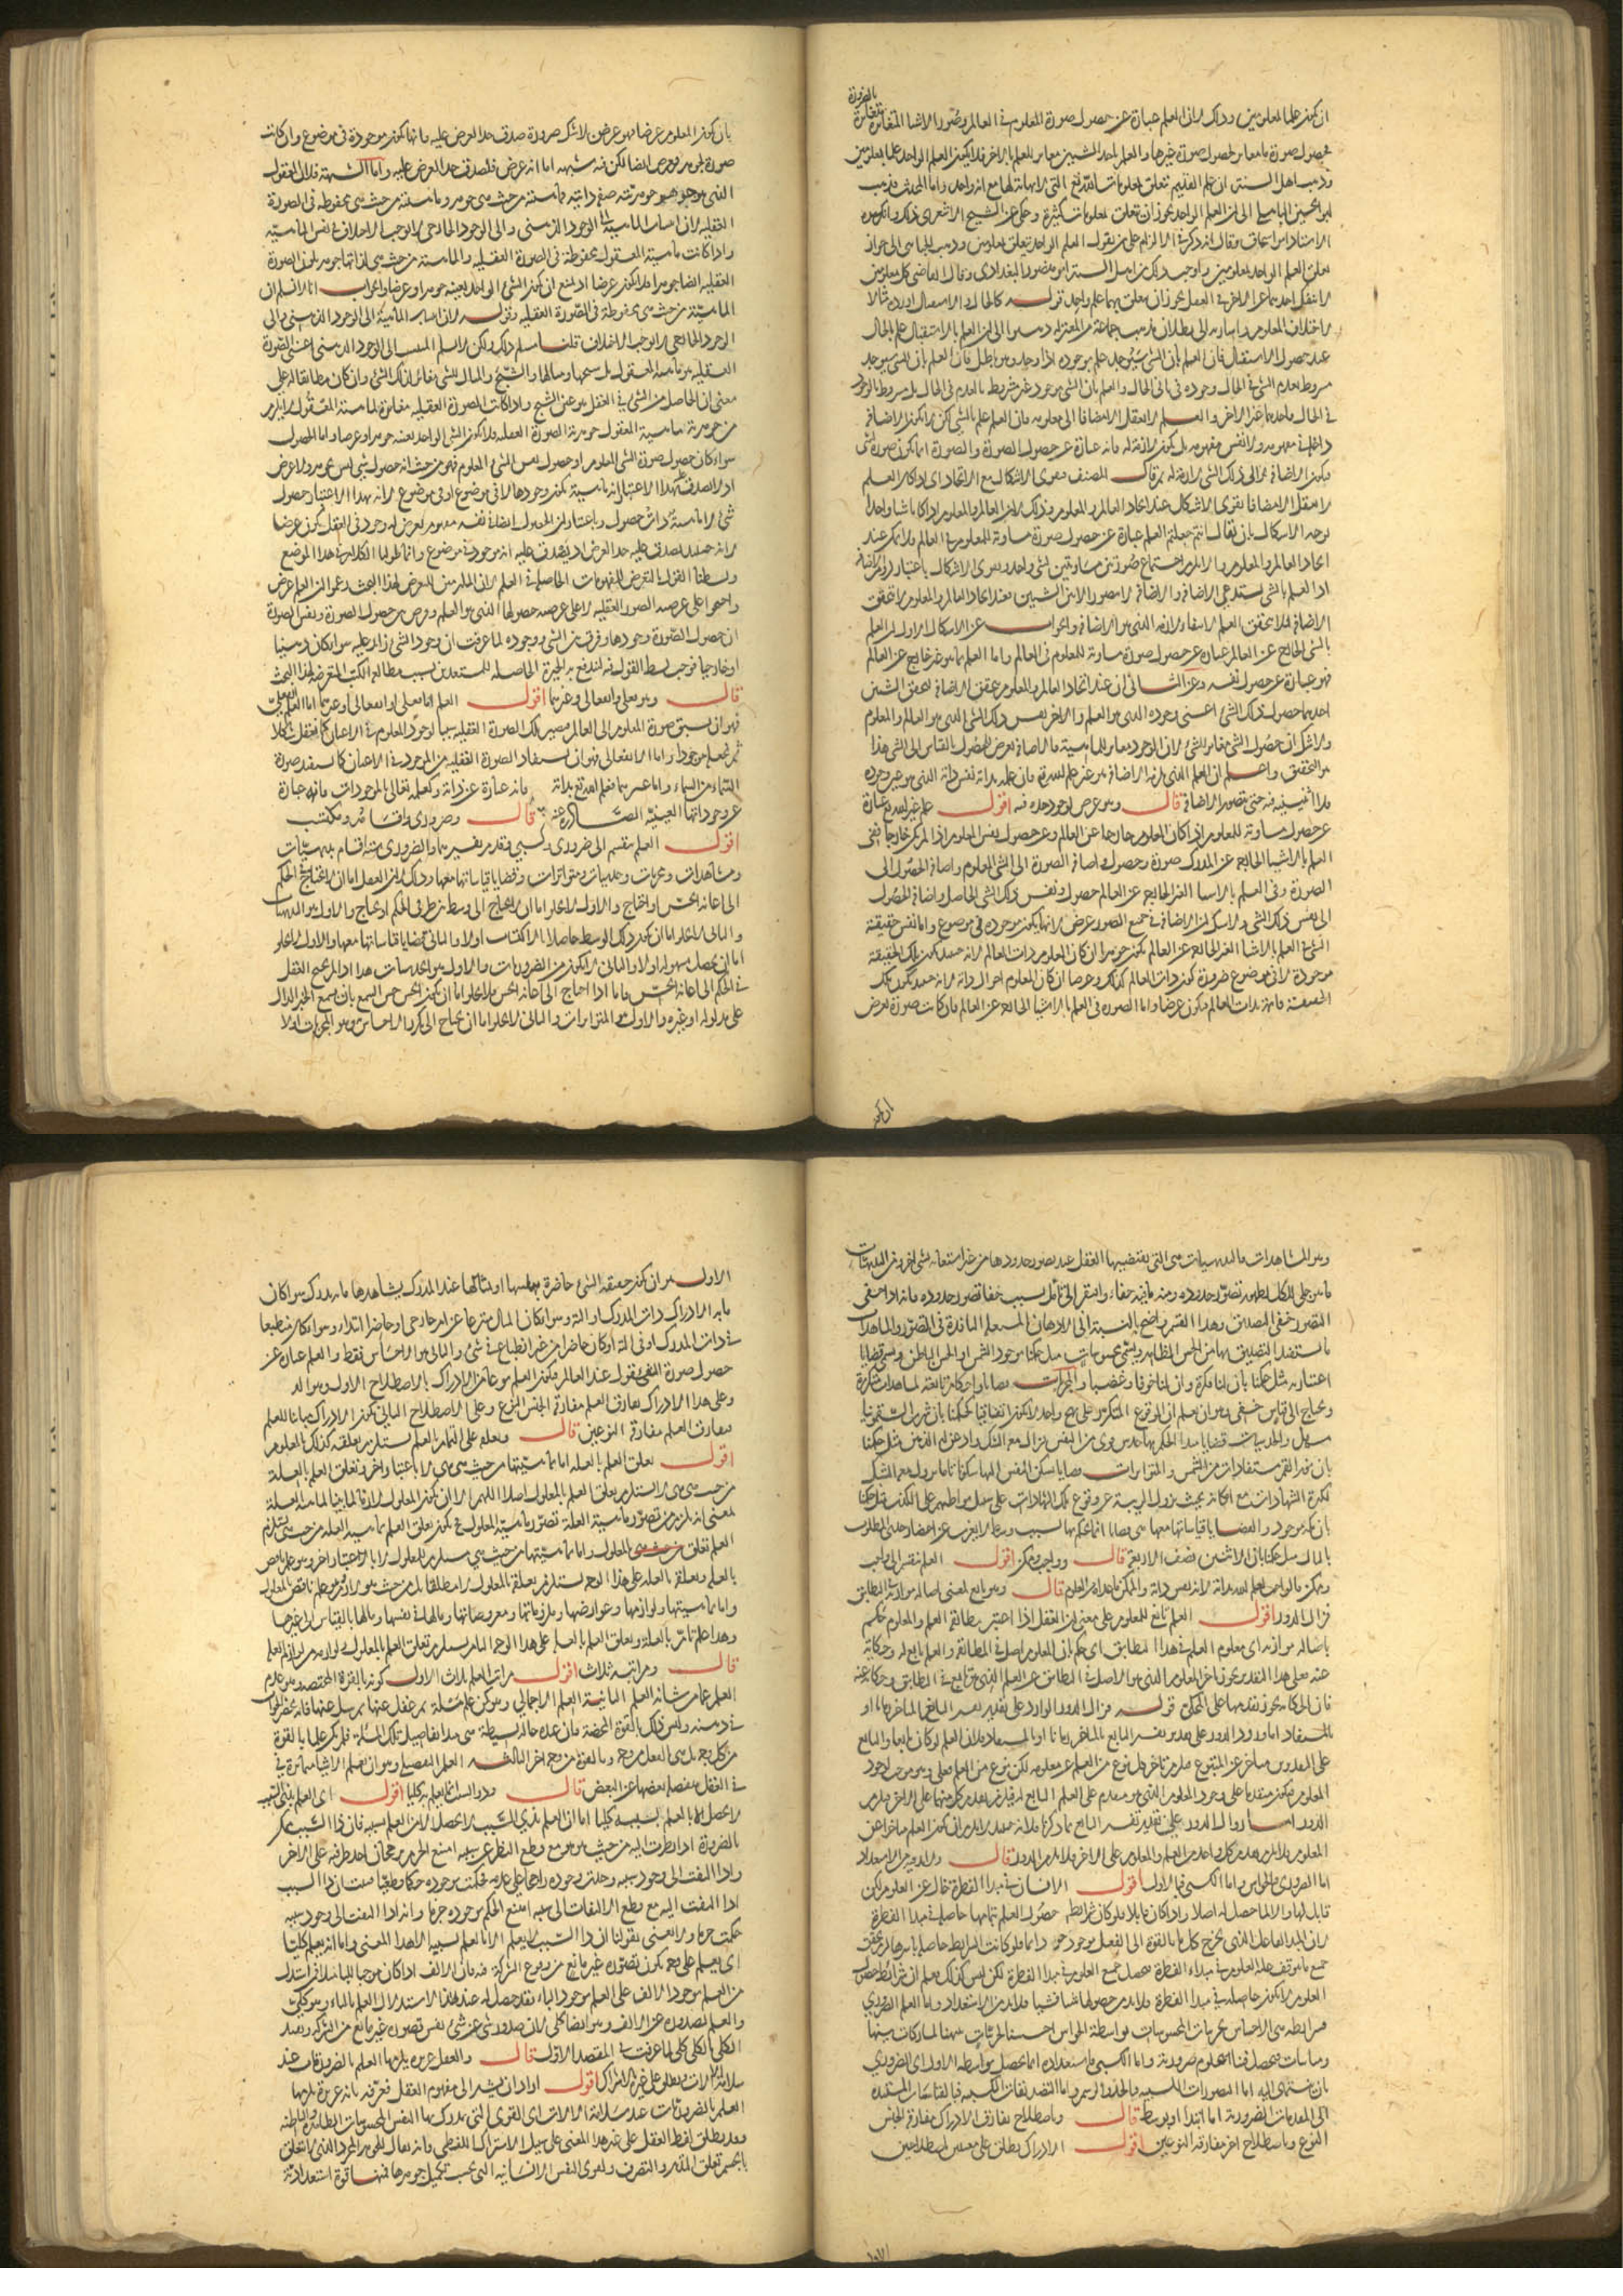 بالضرورة
ان يكون علما بمعلومين وذلك لان العلم عبارة عن حصول صورة المعلوم في العالم وصور الاشيا المتغايرة متغايرة
فحصول صورة مغاير لحصول صورة غيرها والعلم باحد الشيين مغاير للعلم بالاخر فلا يكون العلم الواحد علما بمعلومين
وذهب اهل السنة ان علم القديم تعلق بمعلومات الله تع التي لا نهاية لها مع انه واحد واما المحدث فذهب
ابو الحسين الباهلي الى ان العلم الواحد يجوز ان يتعلق بمعلومات كثيرة وحكى عن الشيخ الاشعري ذلك وانكره
الاستاد ابو اسحاق وقال انه ذكره في الالزام على من يقول العلم الواحد يتعلق بمعلومين وذهب الى جواز
تعلق العلم الواحد بمعلومين من اهل السنة ابو منصور البغدادي وقال القاضي كل معلومين
لا ينفك احدهما عن الاخر في العقل يجوز ان يتعلق بهما علم واحد قوله كالحال والاستقبال اورده مثالا
لاختلاف المعلوم واشارة الى بطلان مذهب جماعة من المعتزلة ذهبوا الى ان العلم بالاستقبال علم بالحال
عند حصول الاستقبال فان العلم بان الشي سيوجد علم بوجوده اذا وجد وهو باطل فان العلم بان الشي سيوجد
مشروط بعدم الشي في الحال ووجوده في ثاني الحال والعلم بان الشي موجود غير مشروط بالعدم في الحال بل مشروط بالوجود
في الحال فاحدهما غير الاخر والعلم لا يعقل الا مضافا الى معلومه فان العلم علم بالشي لكن لا يكون الاضافة
داخلة في مفهومه ولا نفس مفهومه بل يكون لازمة له فانه عبارة عن حصول الصورة والصورة انما يكون صورة لشي
فيكون الاضافة الى ذلك الشي لازمة له ثم قال المصنف فيقوى الاشكال مع الاتحاد اي اذا كان العلم
لا يعقل الا مضافا يقوى الاشكال عند اتحاد العالم والمعلوم وذلك لان العالم والمعلوم اذا كانا شيا واحدا
توجه الاشكال بان يقال انتم جعلتم العلم عبارة عن حصول صورة مساوية للمعلوم في العالم فلا يمكن عند
اتحاد العالم والمعلوم والا لزم اجتماع صورتين متساويتين لشي واحد ويقوى الاشكال باعتبار لزوم الاضافة
اذ العلم بالشي يستدعي الاضافة والاضافة لا تتصور الا بين الشيين فعند اتحاد العالم والمعلوم لا يتحقق
الاضافة فلا يتحقق العلم والجواب عن الاشكال الاول ان العلم
بالشي الخارج عن العالم عبارة عن حصول صورة مساوية للمعلوم في العالم واما العلم بما هو غير خارج عن العالم
فهو عبارة عن حصول نفسه وعن الثاني ان عند اتحاد العالم والمعلوم يتحقق الاضافة لتحقق الشيين
احدهما حصول ذلك الشي اعني وجوده الذي هو العلم والاخر نفس ذلك الشي الذي هو العالم والمعلوم
ولا شك ان حصول الشي مغاير للشي لان الوجود مغاير للماهية فالاضافة تعرض للحصول بالقياس الى الشي هذا
هو التحقيق واعلم ان العلم الذي يلزمه الاضافة هو غير علم الله تع فان علمه بذاته نفس ذاته الذي هو عين وجوده
فلا اثنينية فيه حتى تتصور الاضافة قال وهو عرض لوجود حده فيه اقول علم غير الله تع عبارة
عن حصول مساوية للمعلوم اذا كان المعلوم خارجا عن العالم وعن حصول نفس المعلوم اذا لم يكن خارجا ففي
العلم بالاشيا الخارجة عن المدرك صورة وحصول واضافة الصورة الى الشي المعلوم واضافة الحصول الى
الصورة وفي العلم بالاشيا الغير الخارجة عن العالم حصول ونفس ذلك الشي الحاصل واضافة الحصول
الى نفس ذلك الشي ولا شك ان الاضافة في جميع الصور عرض لانها يكون موجودة في موضوع واما نفس حقيقة
الشي في العلم بالاشيا الغير الخارجة عن العالم يكون جوهرا ان كان المعلوم ذات العالم لانه حينئذ يكون تلك الحقيقة
موجودة لا في موضوع ضرورة كون ذات العالم كذلك وعرضا ان كان المعلوم احوال ذاته لانه حينئذ يكون تلك
الحقيقة قائمة بذات العالم فيكون عرضا واما الصورة في العلم بالاشيا الخارجة عن العالم فان كانت صورة لعرض
ان يكون
بان يكون المعلوم عرضا فهو عرض بلا شك ضرورة صدق حد العرض عليه فانها تكون موجودة في موضوع وان كانت
صورة لجوهر فعرض ايضا لكن فيه شبهة اما انه عرض فلصدق حد العرض عليه واما الشبهة فلان المعقول
الذي هو جوهر جوهريته صفة ذاتية لماهيته من حيث هي جوهر وماهيته من حيث هي محفوظة في الصورة
العقلية لان انتساب الماهية الى الوجود الذهني والى الوجود الخارجي لا يوجب الاختلاف في نفس الماهية
واذا كانت ماهية المعقول محفوظة في الصورة العقلية والماهية من حيث هي لذاتها جوهر يكون الصورة
العقلية ايضا جوهرا فلا يكون عرضا اذ يمتنع ان يكون الشي الواحد بعينه جوهرا وعرضا والجواب انا لا نسلم ان
الماهية من حيث هي محفوظة في الصورة العقلية وقوله لان انتساب الماهية الى الوجود الذهني والى
الوجود الخارجي لا يوجب الاختلاف قلنا نسلم ذلك ولكن لا نسلم المنتسب الى الوجود الذهني اعني الصورة
العقلية هو ماهية المعقول بل شبحها ومثالها والشبح والمثال للشي مغاير لذلك الشي وان كان مطابقا له على
معنى ان الحاصل من الشي في العقل هو عين الشبح واذا كانت الصورة العقلية مغايرة لماهية المعقول لا يلزم
من جوهرية ماهية المعقول جوهرية الصورة العقلية فلا يكون الشي الواحد بعينه جوهرا وعرضا واما الحصول
سواء كان حصول صورة الشي المعلوم او حصول نفس الشي المعلوم فهو من حيث انه حصول شي ليس بجوهر ولا عرض
اذ لا يصدق عليه بهذا الاعتبار انه ماهية يكون وجودها لا في موضوع او في موضوع لانه بهذا الاعتبار حصول
شي لا ماهية ذات حصول وباعتبار ان الحصول ايضا في نفسه مفهوم يعرض له وجود في العقل يكون عرضا
لانه حينئذ يصدق عليه حد العرض اذ يصدق عليه انه موجود في موضوع وانما طولنا الكلام في هذا الموضع
وبسطنا القول بالتعرض للمفهومات الحاصلة في العلم لان الناظرين المتعرضين لهذا البحث زعموا ان العلم عرض
واحتجوا على عرضية الصور العقلية لا على عرضية حصولها الذي هو العلم وفرق بين حصول الصورة ونفس الصورة
اذ حصول الصورة وجودها وفرق بين الشي ووجوده لما عرفت ان وجود الشي زائد عليه سواء كان ذهنيا
او خارجيا فوجب بسط القول فيه لتندفع به الحيرة الحاصلة للمستعدين بسبب مطالعة الكتب المتعرضة لهذا البحث
قال وهو فعلي وانفعالي وغيرهما اقول العلم اما فعلي او انفعالي او غيرهما اما العلم الفعلي
فهو ان يسبق صورة المعلوم الى العالم فيصير تلك الصورة العقلية سببا لوجود المعلوم في الاعيان كما نعقل شكلا
ثم نجعله موجودا واما الانفعالي فهو ان يستفاد الصورة العقلية من الموجود في الاعيان كما نستفيد صورة
السماء من السماء واما غيرهما فعلم الله تع بذاته فانه عبارة عن ذاته وكعلمه تعالى بالموجودات فانه عبارة
عن وجوداتها العينية الصادرة عنه قال وضروري واقسامه ستة ومكتسب
اقول العلم ينقسم الى ضروري وكسبي وقد مر تفسيرهما والضروري ستة اقسام بديهيات
ومشاهدات ومجربات وحدسيات ومتواترات وقضايا قياساتها معها وذلك لان العقل اما ان لا يحتاج في الحكم
الى اعانة الحس او يحتاج والاول لا يخلو اما ان لا يحتاج الى وسط بين طرفي الحكم او يحتاج والاول هو البديهيات
والثاني لا يخلو اما ان يكون ذلك الوسط حاصلا بالاكتساب اولا والثاني قضايا قياساتها معها والاول لا يخلو
اما ان يحصل بسهولة اولا والثاني لا يكون من الضروريات والاول هو الحدسيات هذا اذا لم يحتج العقل
في الحكم الى اعانة الحس واما اذا احتاج الى اعانة الحس فلا يخلو اما ان يكون الحس حس السمع بان يسمع الخبر الدال
على مدلوله او غيره والاول المتواترات والثاني لا يخلو اما ان يحتاج الى تكرار الاحساس وهو المجربات اولا
وهو المشاهدات فالبديهيات هي التي يقتضيها العقل عند تصور حدودها من غير استعانة بشي اخر ومن البديهيات
ما هو جلي للكل لظهور تصور حدوده ومنه ما فيه خفاء وافتقر الى تامل بسبب خفا تصور حدوده فانه اذا خفي
التصور خفي التصديق وهذا القسم واضح بالنسبة الى الاذهان المشتعلة النافذة في التصور والمشاهدات
ما يستفيد التصديق بها من الحس الظاهر ويسمى محسوسات مثل حكمنا بوجود الشمس او الحس الباطن ويسمى قضايا
اعتبارية مثل حكمنا بان لنا فكرة وان لنا خوفا وغضبا والمجربات قضايا واحكام تابعة لمشاهدات متكررة
ويحتاج الى قياس خفي وهو ان يعلم ان الوقوع المتكرر على نهج واحد لا يكون اتفاقيا كحكمنا بان شرب السقمونيا
مسهل والحدسيات قضايا مبدا الحكم بها حدس قوي من النفس يزال معه الشك واذعن له الذهن مثل حكمنا
بان نور القمر مستفاد من الشمس والمتواترات قضايا تسكن النفس اليها سكونا تاما يزول معه الشك
لكثرة الشهادات مع امكانه بحيث يزول الريبة عن وقوع تلك الشهادات على سبيل تواطئهم على الكذب مثل حكمنا
بان مكة موجود والقضايا قياساتها معها هي قضايا انما يحكم بها لسبب وسط لا يعزب عن احضار حدي المطلوب
بالبال مثل حكمنا بان الاثنين نصف الاربعة قال وواجب وممكن اقول العلم ينقسم الى واجب
وممكن فالواجب علم الله بذاته لانه نفس ذاته والممكن ما عداه من العلوم قال وهو تابع بمعنى اصالة موازنه في التطابق
فزال الدور اقول العلم تابع للمعلوم على معنى ان العقل اذا اعتبر مطابقة العلم والمعلوم حكم
باصالة موازنه اي معلوم العلم في هذا التطابق اي حكم بان المعلوم اصل في المطابقة والعلم تابع له وحكاية
عنه فعلى هذا التقدير يجوز تاخر المعلوم الذي هو الاصل في التطابق عن العلم الذي هو تابع في التطابق وحكاية عنه
فان الحكاية يجوز تقدمها على المحكي قوله فزال الدور الوارد على تقدير تفسير التابع بالمتاخر زمانا او
بالمستفاد اما ورود الدور على تقدير تفسير التابع بالمتاخر زمانا او بالمستفاد فلان العلم لو كان تابعا والتابع
على التقديرين متاخر عن المتبوع فيلزم تاخر كل نوع من العلم عن معلومه لكن نوع من العلم فعلي وهو موجب لوجود
المعلوم فيكون متقدما على وجود المعلوم الذي هو متقدم على العلم التابع له فيلزم تقدم كل منهما على الاخر فيلزم
الدور واما زوال الدور على تقدير تفسير التابع بما ذكرنا فلانه حينئذ لا يلزم ان يكون العلم متاخرا عن
المعلوم فلا يلزم تقدم كل واحد من العلم والمعلوم على الاخر فلا يلزم الدور قال ولا بد فيه من الاستعداد
اما الضروري فبالحواس واما الكسبي فبالاول اقول الانسان في مبدا الفطرة خال عن العلوم لكن
قابل لها والا لما حصل له اصلا واذا كان قابلا فلو كان شرائط حصول العلم بتمامها حاصلة في مبدا الفطرة
لان المبدا الفاعل الذي يخرج كل ما بالقوة الى الفعل موجود دائما فلو كانت الشرائط حاصلة باسرها لزم تحقق
جميع ما يتوقف عليه العلوم في مبداء الفطرة فيحصل جميع العلوم في مبدا الفطرة لكن ليس كذلك فعلم ان شرائط حصول
العلوم لا يكون حاصلة في مبدا الفطرة ولابد من حصولها شيا فشيا فلا بد من الاستعداد واما العلم الضروري
فشرائطه هي الاحساس بجزئيات المحسوسات بواسطة الحواس احسسنا بالجزئيات تنبهنا لمشاركات بينها
ومباينات فيحصل فينا علوم ضرورية واما الكسبي فاستعداده انما يحصل بواسطة الاول اي الضروري
بان ينتهي اليه اما التصورات الكسبية فبالحدود والرسوم واما التصديقات الكسبية فبالقياسات المستندة
الى المقدمات الضرورية اما ابتدا او بوسط قال وباصطلاح يفارق الادراك مفارقة الجنس
النوع وباصطلاح اخر مفارقة النوعين اقول الادراك يطلق على معنيين اصطلاحين
الاول
الاول هو ان يكون حقيقة الشي حاضرة بنفسها او بمثالها عند المدرك يشاهدها ما به يدرك سواء كان
ما به الادراك ذات المدرك او الته وسواء كان المثال منتزعا عن امر خارجي او حاضرا ابتداء وسواء كان منطبعا
في ذات المدرك او في الته او كان حاضرا من غير انطباع في شي والثاني هو الاحساس فقط والعلم عبارة عن
حصول صورة الشي عند العالم فيكون العلم نوعا من الادراك بالاصطلاح الاول
وعلى هذا الادراك يفارق العلم مفارقة الجنس النوع وعلى الاصطلاح الثاني يكون الادراك مباينا للعلم
فيفارق العلم مفارقة النوعين قال وتعلقه على التمام بالعلة يستلزم تعلقه كذلك بالمعلول
اقول تعلق العلم بالعلة اما بماهيتها من حيث هي هي لا باعتبار اخر وتعلق العلم بالعلة
من حيث هي هي لا يستلزم تعلق العلم بالمعلول اصلا اللهم الا ان يكون المعلول لازما بينا لماهية العلة
بمعنى انه يلزم من تصور ماهية العلة تصور ماهية المعلول فح يكون تعلق العلم بماهية العلة من حيث هي يستلزم
العلم تعلق بالمعلول واما بماهيتها من حيث هي مستلزم للمعلول لا باعتبار اخر وهو علم ناقص
بالعلة وتعلقه بالعلة على هذا الوجه يستلزم تعلقه بالمعلول لا مطلقا بل من حيث هو لازم وهو علم ناقص بالمعلول
واما بماهيتها ولوازمها وعوارضها وملزوماتها ومعروضاتها وما لها في نفسها وما لها بالقياس الى غيرها
وهذا علم تام بالعلة وتعلق العلم بالعلة على هذا الوجه التام يستلزم تعلق العلم بالمعلول
قال ومراتبه ثلاث اقول مراتب العلم ثلاث الاولى كونه بالقوة المحضة وهو عدم
العلم عما من شانه العلم الثانية العلم الاجمالي وهو كمن علم مسئلة ثم غفل عنها ثم سئل عنها فانه يحضر الجواب
في ذهنه وليس ذلك بالقوة المحضة فان عنده حالة بسيطة هي مبدا تفاصيل تلك المسئلة فلم يكن علما بالقوة
من كل وجه بل هي بالفعل من وجه وبالقوة من وجه اخر الثالثة العلم التفصيلي وهو ان يعلم الاشيا متمايزة في
في العقل منفصلة بعضها عن البعض قال وذو السبب انما يعلم به كليا اقول اي العلم بذي السبب
لا يحصل الا بالعلم بسببه كليا اما ان العلم بذي السبب لا يحصل الا من العلم بسببه فان ذا السبب ممكن
بالضرورة اذا نظرت اليه من حيث هو هو مع قطع النظر عن سببه امتنع الجزم برجحان احد طرفيه على الاخر
واذا التفت الى وجود سببه وجدت وجوده راجحا على عدمه فحكمت بوجوده حكما قطعيا فثبت ان ذا السبب
اذا التفت اليه مع قطع الالتفات الى سببه امتنع الحكم بوجوده جزما وانه اذا التفت الى وجود سببه
حكمت جزما ولا نعني بقولنا ان ذا السبب لا يعلم الا بالعلم بسببه الا هذا المعنى واما انه يعلم كليا
اي يعلم على وجه يكون تصوره غير مانع من وقوع الشركة فيه فان الالف اذا كان موجبا للباء فلا استدل
من العلم بوجود الالف على العلم بوجود الباء فقد حصل له عند هذا الاستدلال العلم بالباء وهو كلي
والعلم بصدوره عن الالف وهو ايضا كلي لان صدور شي عن شي نفس تصوره غير مانع من الشركة وتقييد
الكلي بالكلي كلي لما عرفت في المقصد الاول قال والعقل غريزة يلزمها العلم بالضروريات عند
سلامة الالات ويطلق على غيره بالاشتراك اقول اراد ان يشير الى مفهوم العقل فعرفه بانه غريزة يلزمها
العلم بالضروريات عند سلامة الالات اي القوى التي يدرك بها النفس المحسوسات الظاهرة والباطنة
وقد يطلق لفظ العقل على غير هذا المعنى على سبيل الاشتراك اللفظي فانه يقال للجوهر المجرد الذي لا يتعلق
بالجسم تعلق التدبير والتصرف ولقوى النفس الانسانية التي بحسب تكميل جوهرها فمنها قوة استعدادية